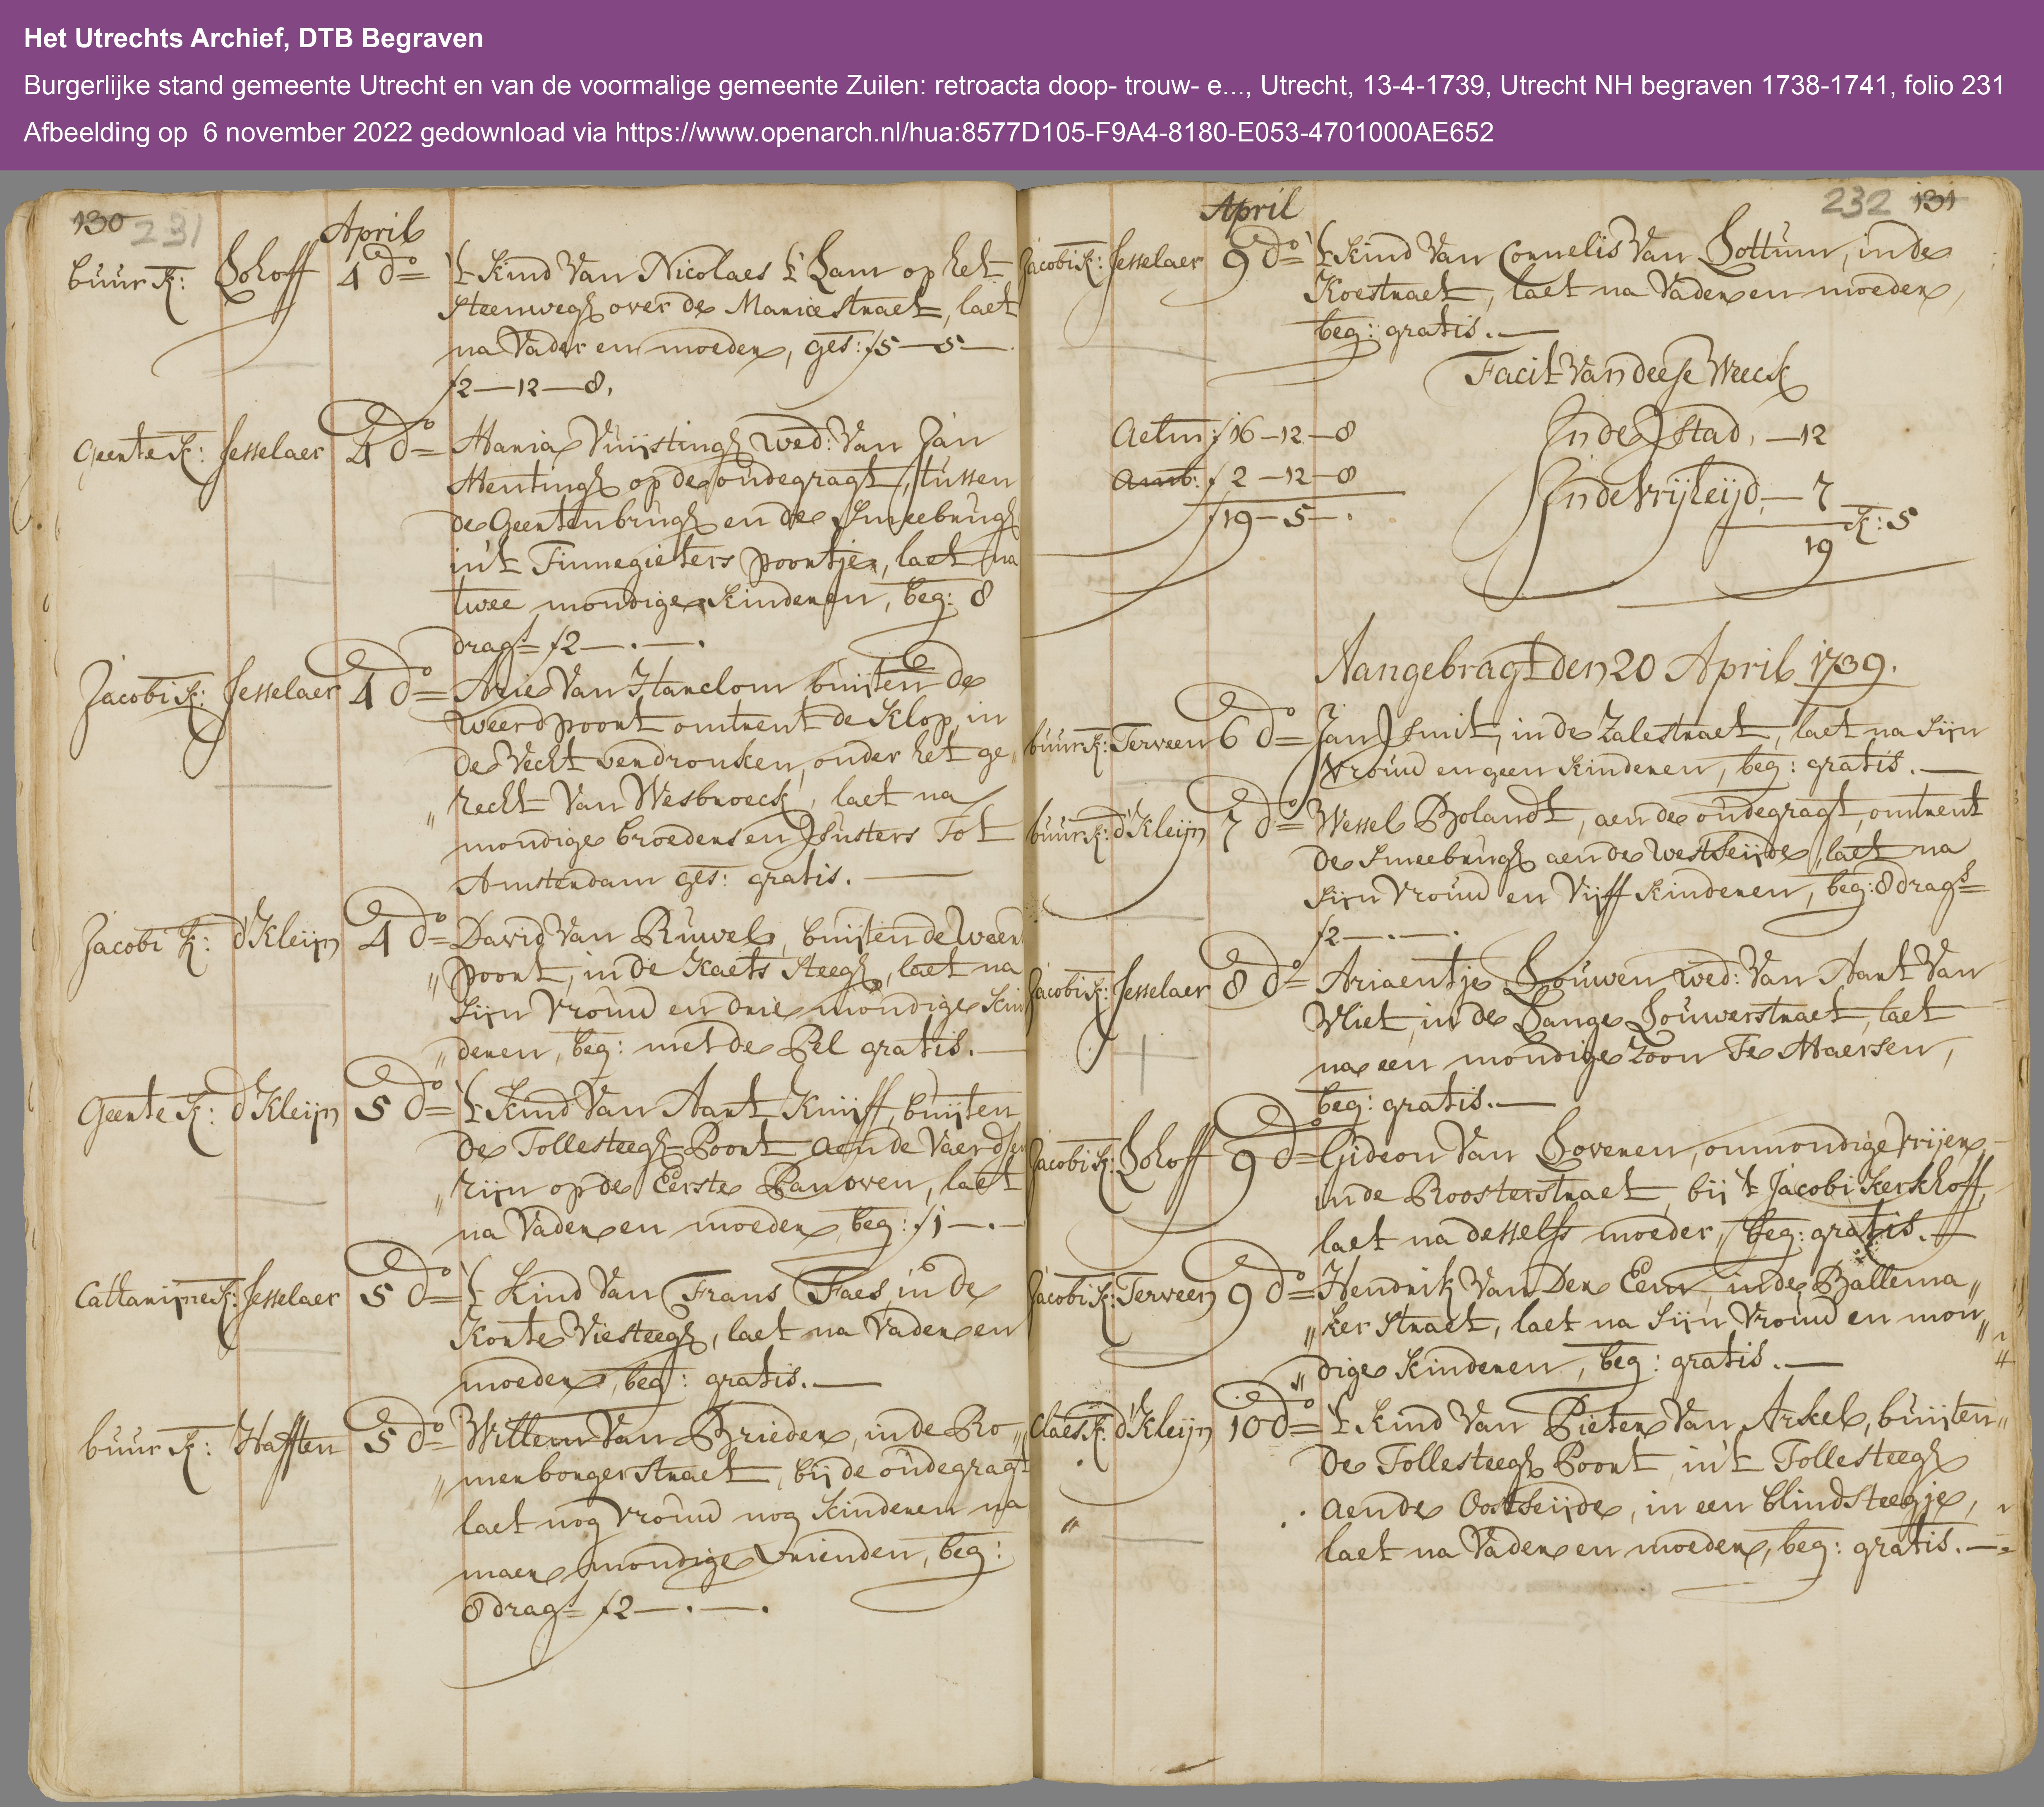 Het Utrechts Archief, DTB Begraven
Burgerlijke stand gemeente Utrecht en van de voormalige gemeente Zuilen: retroacta doop- trouw- e..., Utrecht, 13-4-1739, Utrecht NH begraven 1738-1741, folio 231
Afbeelding op 6 november 2022 gedownload via https://www.openarch.nl/hua:8577D105-F9A4-8180-E053-4701000AE652
130 231
April
buur K: Lohoff 4 do= 't Kind van Nicolaes 't Lam op het
steenwegh over de Marie straet, laet
na Vader en moeder, ges: f5—5—
f2—12—8.
Geerte K: Jesselaer 4 do= Maria Vuijstingh wed: van Jan
Mentingh op de oudegragt, tussen
de Geertenbrugh en de Smeebrugh
in't Tinnegieters poortje, laet na
twee mondige Kinderen, beg: 8
drags f2—.—.
Jacobi K: Jesselaer 4 do= Arie Van Harclom buijten de
weerdpoort omtrent de Klop, in
de Vecht verdronken, onder het ge„
„recht van Wesbroeck, laet na
mondige broeders en Susters Tot
Amsterdam ges: gratis.—
Jacobi K: d'Kleijn 4 do= David Van Ruwel, buijten de weert
„poort, in de Kaets steegh, laet na
sijn vrouw en drie mondige kin
„deren, beg: met de Pel gratis.—
Geerte K: d'Kleijn 5 do= 't Kind Van Aart Knijff, buijten
de Tollesteegh Poort aen de Vaerdse
„rijn op de Eerste Panoven, laet
na Vader en moeder beg: f1—.—
Cattarijne K: Jesselaer 5 do= 't Kind van Frans Faes, in de
Korte Viesteegh, laet na Vader en
moeder, beg: gratis.—
buur K: Hafften 5 do= Willem Van Brieder, in de Ro„
„merborger straet, bij de oudegragt
laet nog vrouw nog kinderen na
maer mondige Vrienden, beg:
8 drags f2—.—.
232 131
April
Jacobi K: Jesselaer 9 do= 't Kind van Cornelis Van Lottum, in de
Koestraet, laet na Vader en moeder,
beg: gratis.—
Facit Van deese Weeck
Aelm: f16—12—8 In de Stad, —12
Amb: f 2—12—8 In de Vrijleijd,—7
f19—5—. K: 5
19
Aangebragt den 20 April 1739.
buur K: Terveen 6 do= Jan Smit, in de Zalestraet, laet na sijn
vrouw en geen kinderen, beg: gratis.—
buur K: d'Kleijn 7 do= Wessel Bolandt, aen de oudegragt, omtrent
de Smeebrugh aen de Westseijde, laet na
sijn vrouw en Vijff kinderen, beg: 8 drags
f2—.—.
Jacobi K: Jesselaer 8 do= Ariaentje Louwen wed: Van Aart Van
Vliet, in de Lange Louwerstraet, laet
na een mondige zoon Te Maersen,
beg: gratis.—
Jacobi K: Lohoff 9 do= Gideon Van Loveren, onmondige vrijer,
in de Roosterstraet, bij 't Jacobi Kerkhoff,
laet na desselfs moeder, beg: gratis.—
Jacobi K: Terveen 9 do= Hendrik Van Den Eem, in de Ballema„
„ker straet, laet na sijn vrouw en mon„
„dige kinderen, beg: gratis.—
Claes K: d'Kleijn 10 do= 't Kind Van Pieter Van Arkel, buijten
de Tollesteegh Poort in't Tollesteegh
aen de Oostseijde, in een blind steegje,
laet na Vader en moeder, beg: gratis.—